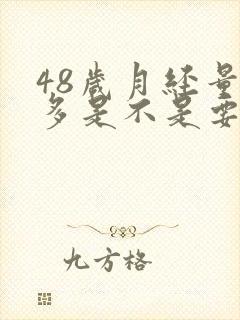 48歲月经量
多是不是要
九方格